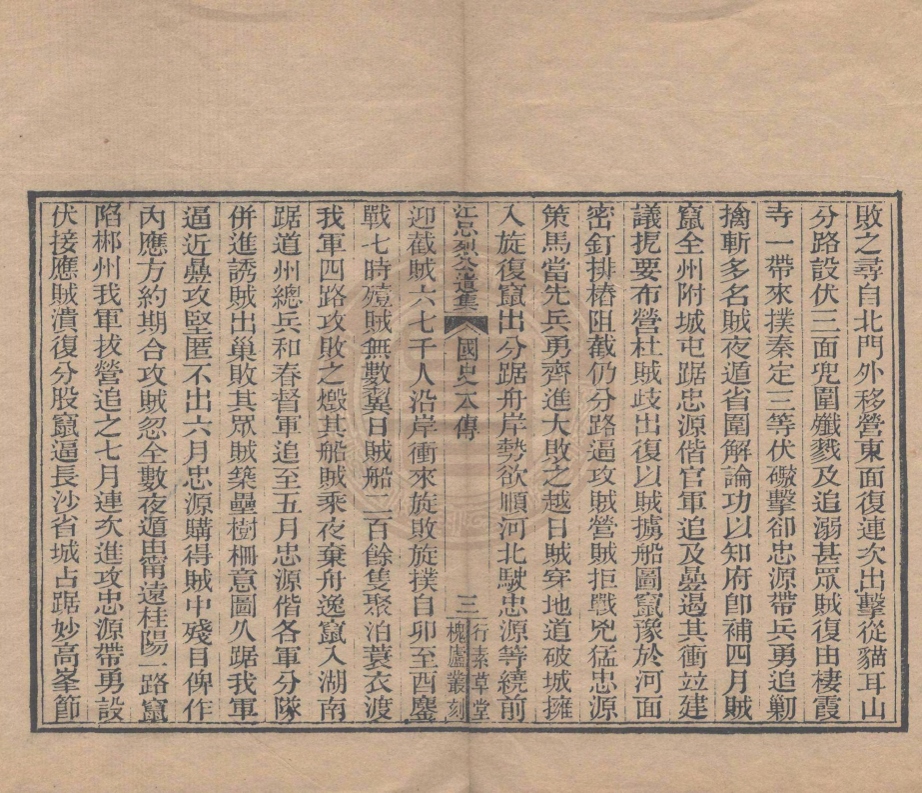 敗之尋自北門外移營東面復連次出擊從貓耳山
分路設伏三面兜圍殲戮及追溺甚眾賊復由棲霞
寺一帶來撲秦定三等伏礮擊卻忠源帶兵勇追剿
擒斬多名賊夜遁省圍解論功以知府卽補四月賊
竄全州附城屯踞忠源偕官軍追及曡遏其衝竝建
議扼要布營杜賊歧出復以賊擄船圖竄豫於河面
密釘排樁阻截仍分路逼攻賊營賊拒戰兇猛忠源
策馬當先兵勇齊進大敗之越日賊穿地道破城擁
入旋復竄出分踞舟岸勢欲順河北駛忠源等繞前
江忠烈公遺集
國史本傳
三
行素草堂
槐廬叢刻
迎截賊六七千人沿岸衝來旋敗旋撲自卯至酉鏖
戰七時殪賊無數翼日賊船二百餘隻聚泊蓑衣渡
我軍四路攻敗之燬其船賊乘夜棄舟逸竄入湖南
踞道州總兵和春督軍追至五月忠源偕各軍分隊
併進誘賊出巢敗其眾賊築壘樹柵意圖久踞我軍
逼近曡攻堅匿不出六月忠源購得賊中殘目俾作
內應方約期合攻賊忽全數夜遁由甯遠桂陽一路竄
陷郴州我軍拔營追之七月連次進攻忠源帶勇設
伏接應賊潰復分股竄逼長沙省城占踞妙高峯節